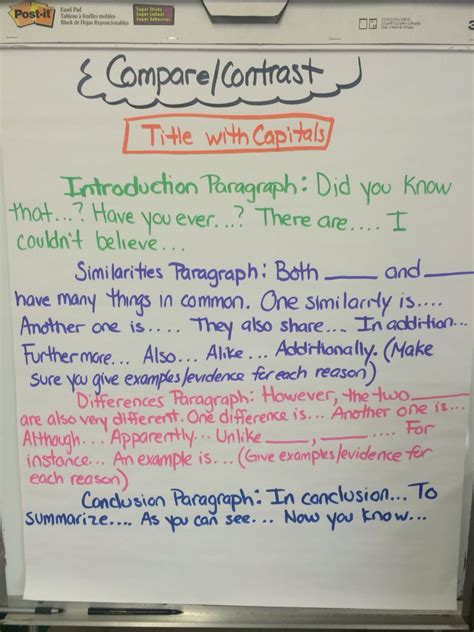 Post-it
Easel Pad
Tableau à feuilles mobiles
Block de Hojas Reposicionables
Super Sticky
Super Collant
Super Adhesivas
Compare/Contrast
Title with Capitals
Introduction Paragraph: Did you know
that...? Have you ever...? There are.... I
couldn't believe...
Similarities Paragraph: Both ____ and ____
have many things in common. One similarity is....
Another one is.... They also share... In addition...
Furthermore... Also... Alike... Additionally. (Make
sure you give examples/evidence for each reason)
Differences Paragraph: However, the two ____
are also very different. One difference is... Another one is...
Although.... Apparently... Unlike ____, ____ .... For
instance... An example is... (Give examples/evidence for
each reason)
Conclusion Paragraph: In conclusion... To
summarize.... As you can see... Now you know...